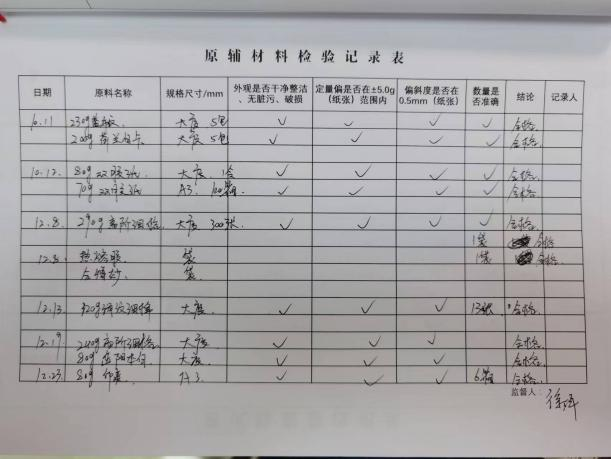 原辅材料检验记录表
日期 原料名称 规格尺寸/mm 外观是否干净整洁、无脏污、破损 定量偏是否在±5.0g(纸张)范围内 偏斜度是否在0.5mm(纸张) 数量是否准确 结论 记录人
10.11 230g 大度 5包 ✓ ✓ ✓ ✓ 合格
200g 荷兰白卡 大度 5包 ✓ ✓ ✓ ✓ 合格.
10.12. 80g 双胶纸 大度 ✓ ✓ ✓ ✓ 合格.
70g 双胶纸 A3 ✓ ✓ ✓ ✓ 合格.
12.8. 大度 300张 ✓ ✓ ✓ ✓ 合格.
1袋 合格
12.8 热熔胶 袋 1袋 合格.
袋.
12.13 大度 ✓ ✓ ✓ 13张 合格.
12.19 大度 ✓ ✓ ✓ 合格.
80g 大度 ✓ ✓ ✓ 合格.
12.23 80g A3 ✓ ✓ ✓ 6箱 合格.
监督人: